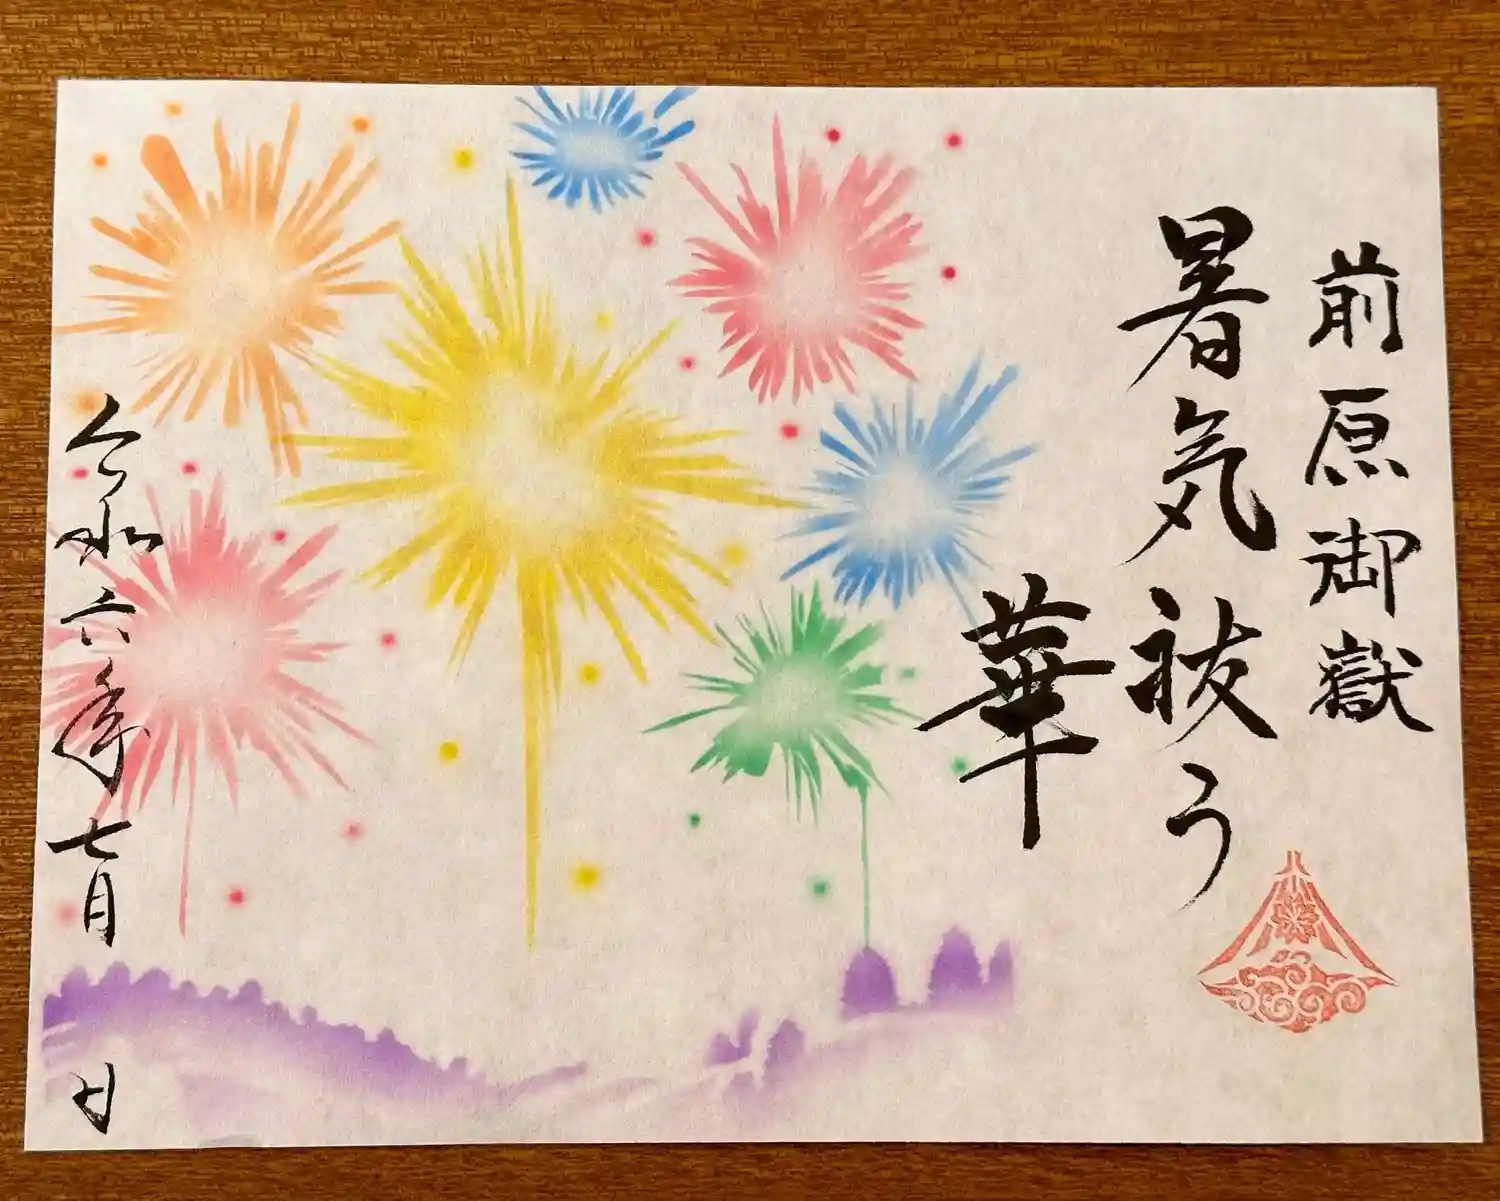 前原御嶽
暑気祓う
華
令和六年七月 日